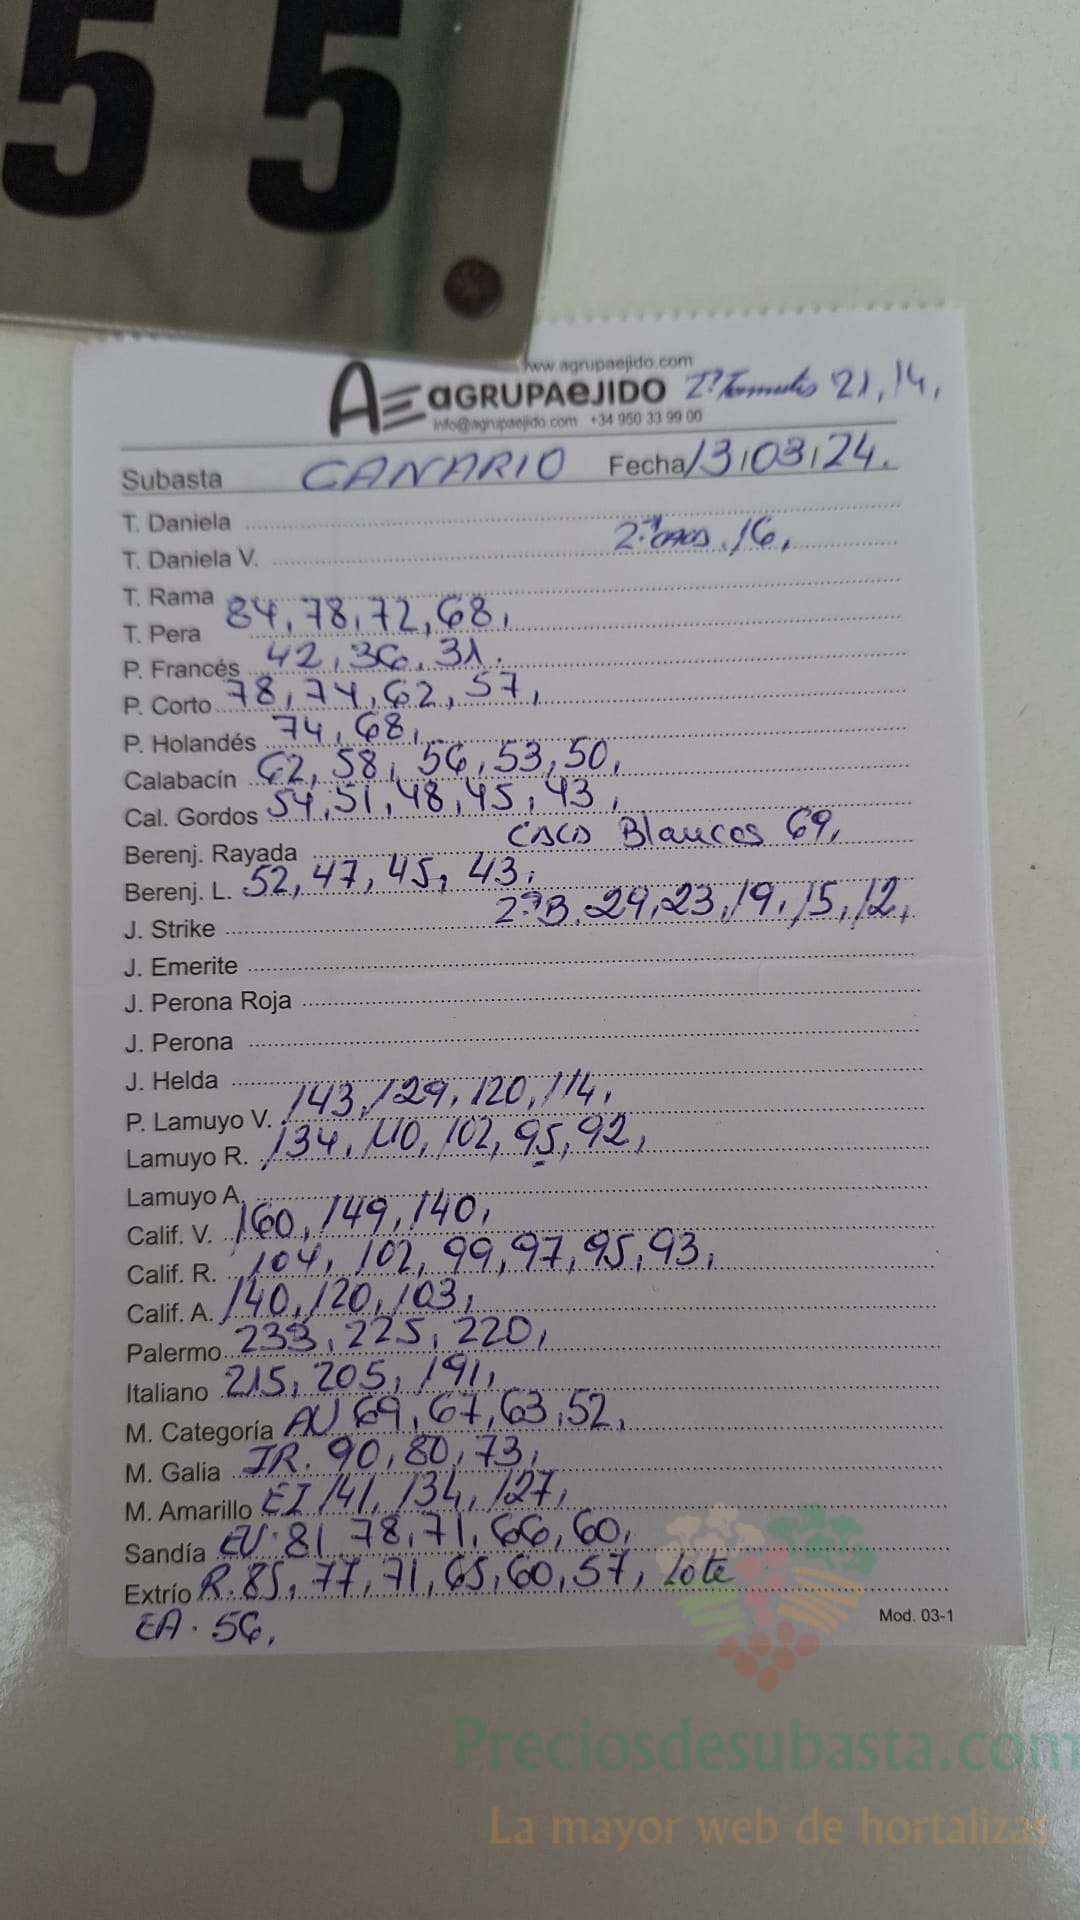 55
www.agrupaejido.com
AE aGRUPAeJIDO 21, 14,
info@agrupaejido.com +34 950 33 99 00
Subasta CANARIO Fecha 13/03/24.
T. Daniela
T. Daniela V. 16,
T. Rama
T. Pera 84, 78, 72, 68,
P. Francés 42, 36, 31.
P. Corto 78, 74, 62, 57,
P. Holandés 74, 68,
Calabacín 62, 58, 56, 53, 50,
Cal. Gordos 54, 51, 48, 45, 43,
Berenj. Rayada Blancos 69,
Berenj. L. 52, 47, 45, 43,
J. Strike 2ªB. 29, 23, 19, 15, 12,
J. Emerite
J. Perona Roja
J. Perona
J. Helda
P. Lamuyo V. 143, 129, 120, 114,
Lamuyo R. 134, 110, 102, 95, 92,
Lamuyo A.
Calif. V. 160, 149, 140,
Calif. R. 104, 102, 99, 97, 95, 93,
Calif. A. 140, 120, 103,
Palermo 233, 225, 220,
Italiano 215, 205, 191,
M. Categoría AU 69, 67, 63, 52,
M. Galia IR. 90, 80, 73,
M. Amarillo EI 141, 134, 127,
Sandía EU. 81, 78, 71, 66, 60,
Extrío R. 85, 77, 71, 65, 60, 57, Lote
EA. 56,
Mod. 03-1
Preciosdesubasta.com
La mayor web de hortalizas